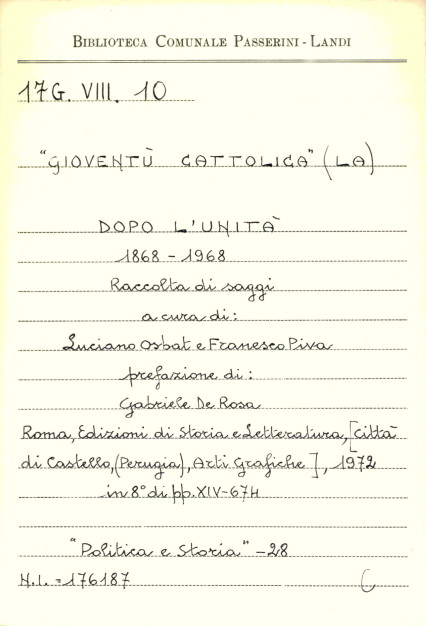 BIBLIOTECA COMUNALE PASSERINI - LANDI
17G. VIII. 10
"GIOVENTÙ CATTOLICA" (LA)
DOPO L'UNITÀ
1868 - 1968
Raccolta di saggi
a cura di:
Luciano Osbat e Franesco Piva
prefazione di:
Gabriele De Rosa
Roma, Edizioni di Storia e Letteratura, [Città
di Castello, (Perugia), Arti Grafiche], 1972
in 8° di pp. XIV-674
"Politica e Storia" - 28
N.I. = 176187